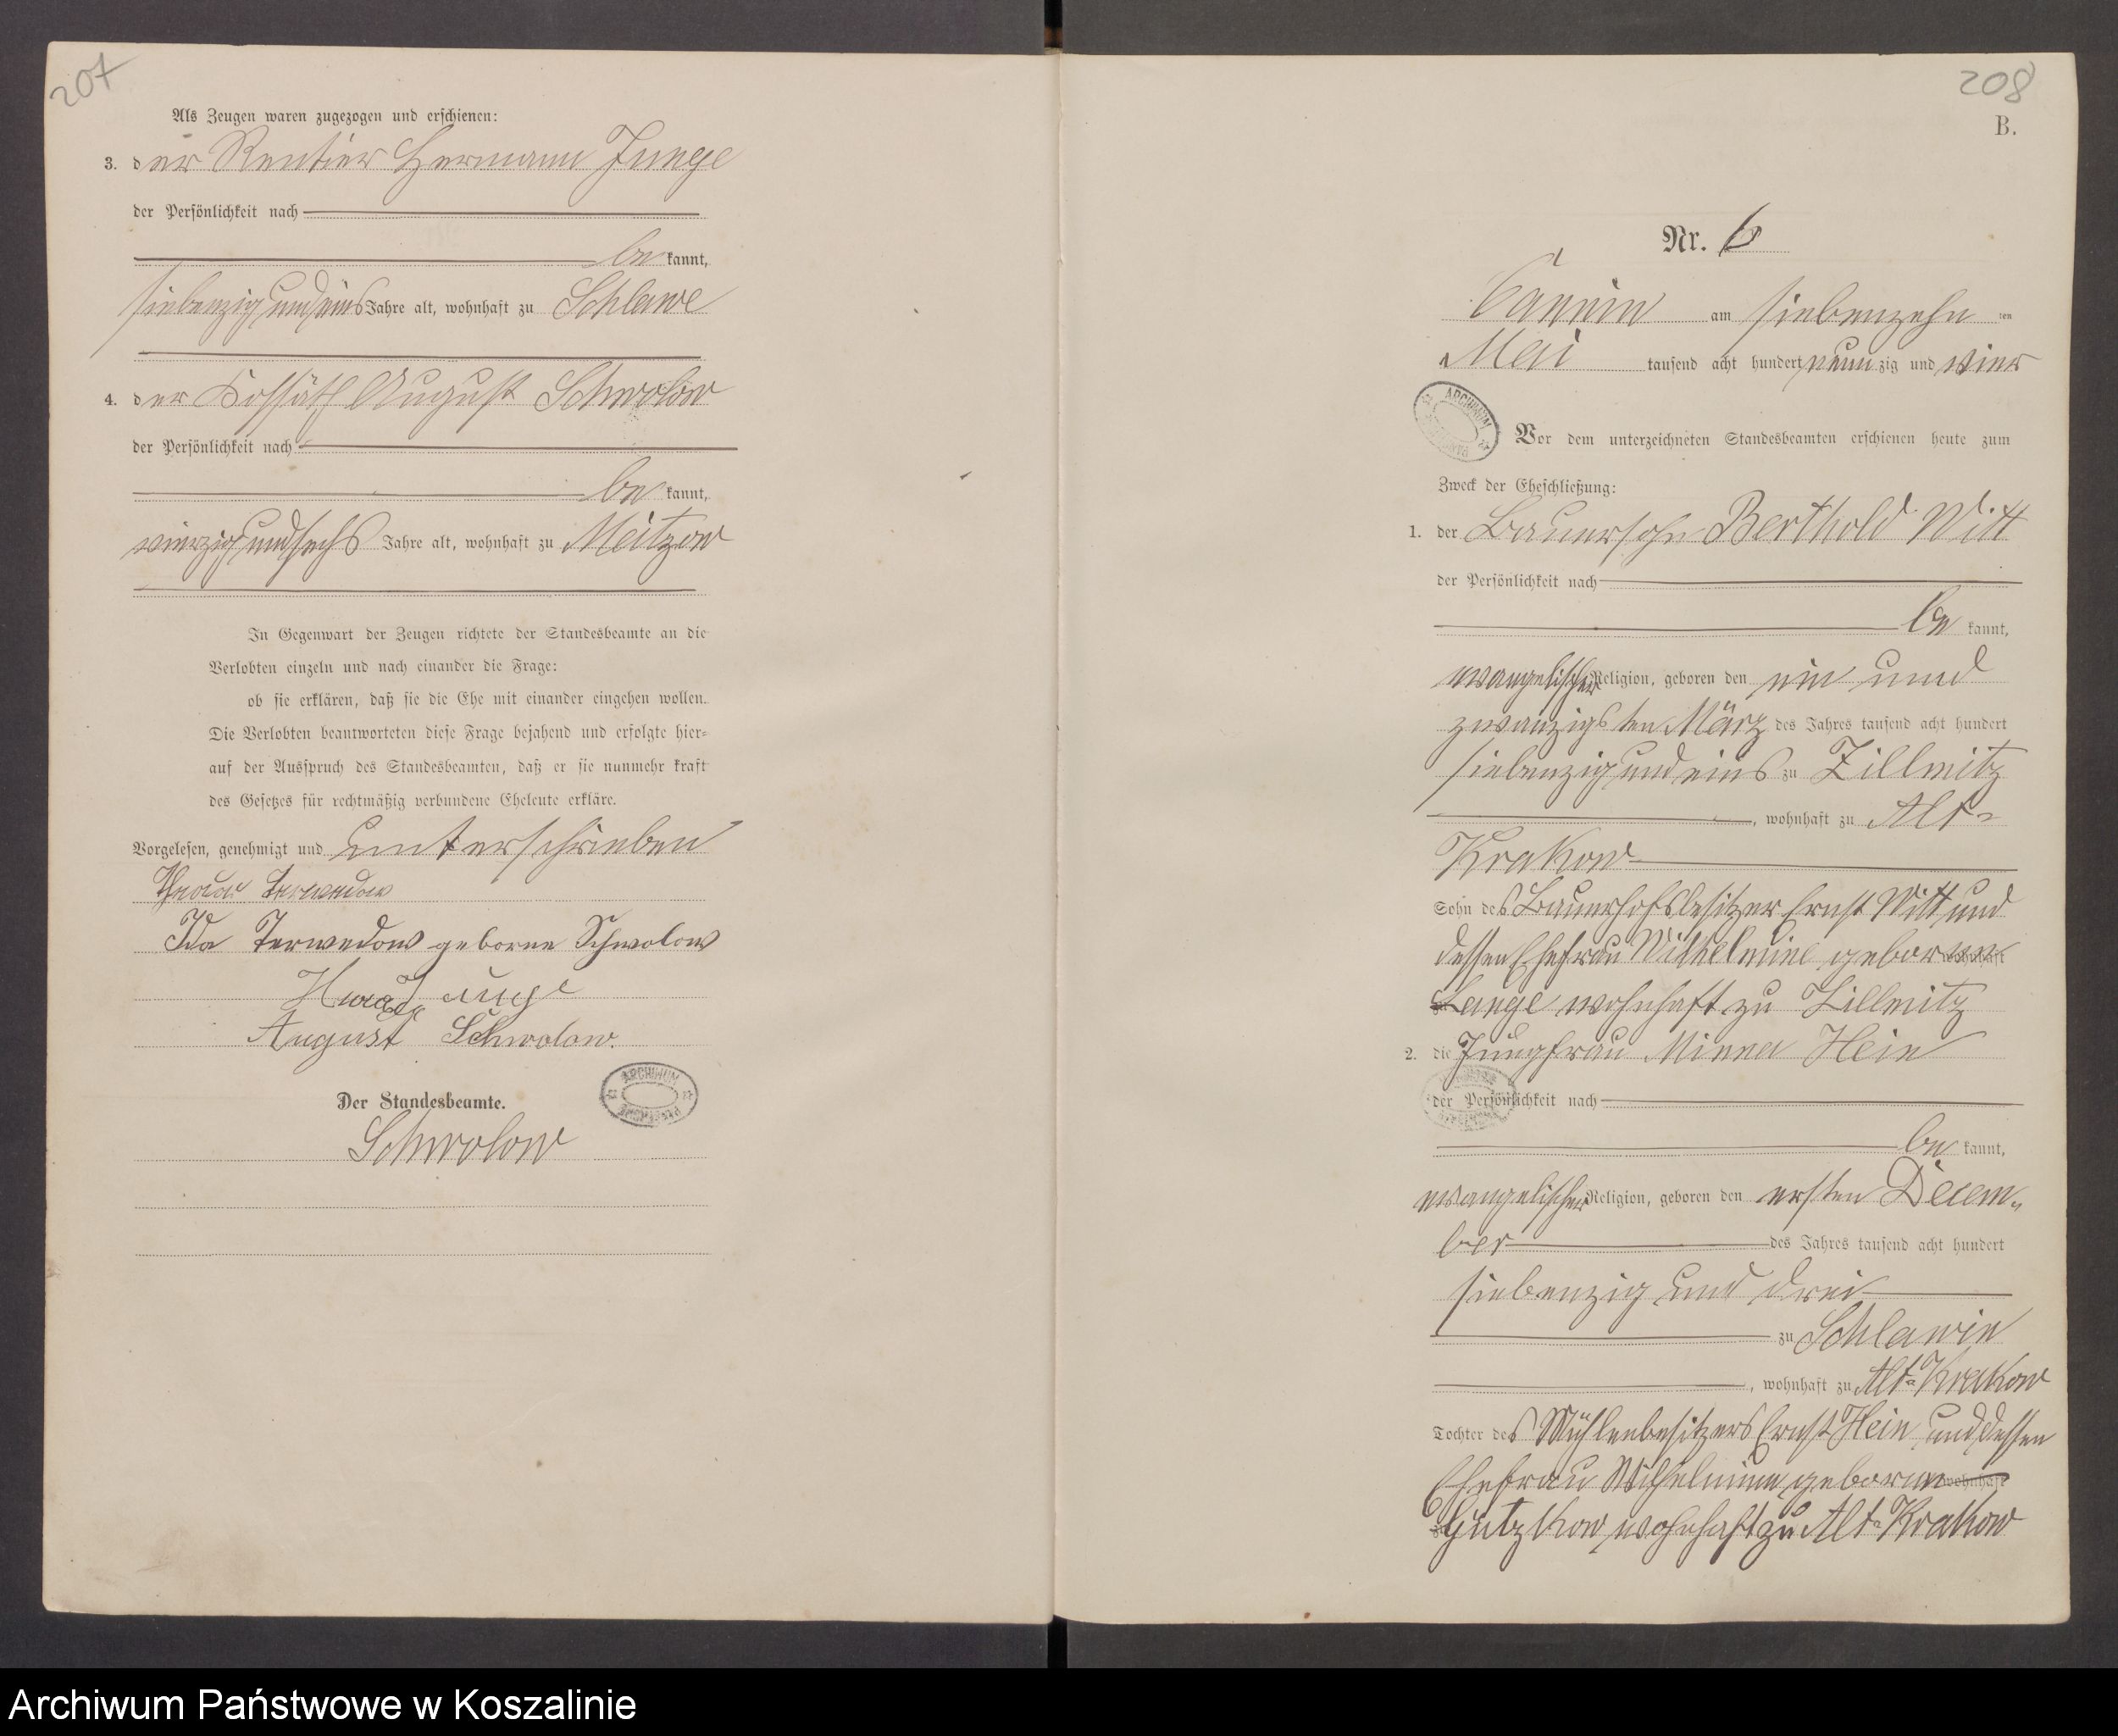 207
Als Zeugen waren zugezogen und erschienen:
3. der Rentier Hermann Junge
der Persönlichkeit nach
be kannt,
siebenzig und eins Jahre alt, wohnhaft zu Schlawe
4. der Kossäth August Schwolow
der Persönlichkeit nach
be kannt,
vierzig und sechs Jahre alt, wohnhaft zu Meitzow
In Gegenwart der Zeugen richtete der Standesbeamte an die
Verlobten einzeln und nach einander die Frage:
ob sie erklären, daß sie die Ehe mit einander eingehen wollen.
Die Verlobten beantworteten diese Frage bejahend und erfolgte hier-
auf der Ausspruch des Standesbeamten, daß er sie nunmehr kraft
des Gesetzes für rechtmäßig verbundene Eheleute erkläre.
Vorgelesen, genehmigt und unterschrieben
Terwedow
Ida Terwedow geborne Schwolow
Junge
August Schwolow.
ARCHIWUM
Der Standesbeamte.
Schwolow
208
B.
Nr. 6
Cannin am siebenzehn ten
Mai tausend acht hundert neun zig und vier
ARCHIWUM
Vor dem unterzeichneten Standesbeamten erschienen heute zum
Zweck der Eheschließung:
1. der Bauersohn Berthold Witt
der Persönlichkeit nach
be kannt,
evangelischer Religion, geboren den ein und
zwanzigsten März des Jahres tausend acht hundert
siebenzig und eins zu Zillmitz
, wohnhaft zu Alt-
Krakow
Sohn des Bauerhofsbesitzer Ernst Witt und
dessen Ehefrau Wilhelmine geborne wohnhaft
zu Lange wohnhaft zu Zillmitz
2. die Jungfrau Minna Hein
der Persönlichkeit nach
be kannt,
evangelischer Religion, geboren den ersten Decem-
ber des Jahres tausend acht hundert
siebenzig und drei
zu Schlawin
, wohnhaft zu Alt-Krakow
Tochter des Mühlenbesitzers Ernst Hein und dessen
Ehefrau Wilhelmine geborne wohnhaft
zu Gützkow wohnhaft zu Alt-Krakow
Archiwum Państwowe w Koszalinie